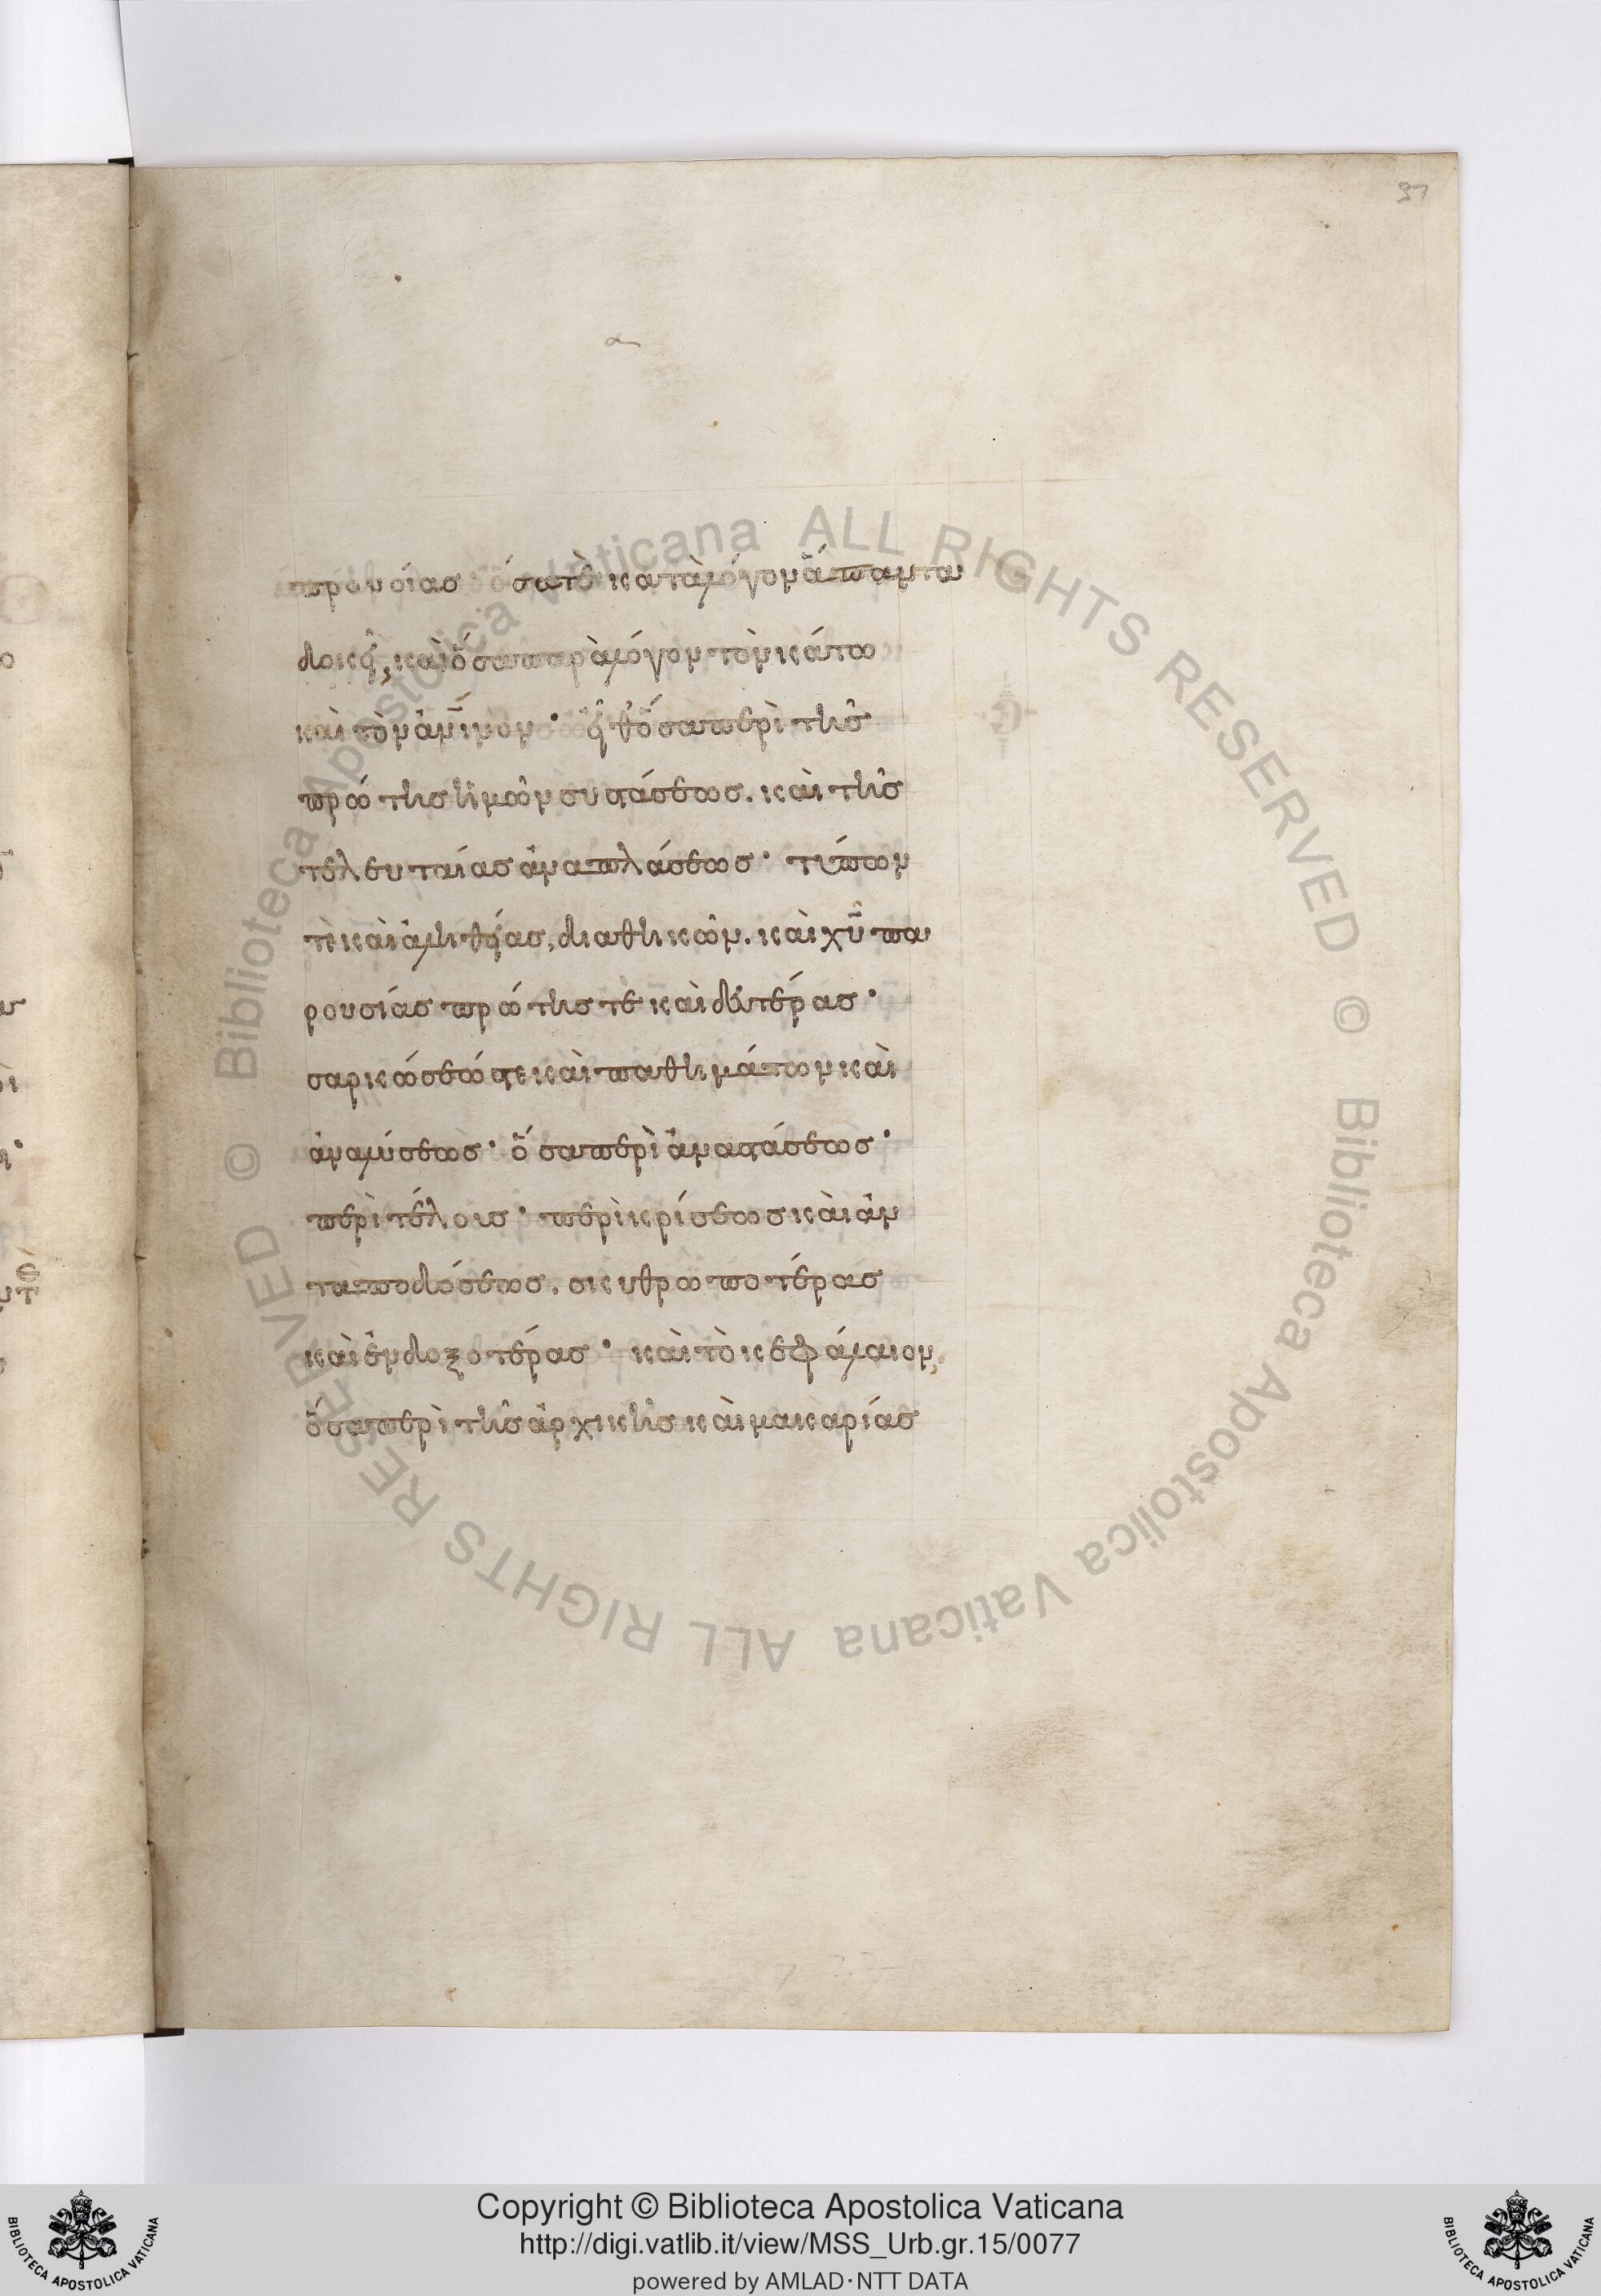 37
α
προνοίας· ὅσα τὲ κατὰ λόγον ἅπαντα
δοκεῖ, καὶ ὅσα παρὰ λόγον τὸν κάτω
καὶ τὸν ἀνῖνον· ἔτι θ ὅσα περὶ τῆς
πρώτης ἡμῶν συστάσεως. καὶ τῆς
τελευταίας ἀναπλάσεως· τύπων
τὲ καὶ ἀληθείας, διαθηκῶν. καὶ χῦ πα
ρουσίας πρώτης τε καὶ δευτέρας·
σαρκώσεώς τε καὶ παθημάτων καὶ
ἀναλύσεως· ὅσα περὶ ἀναστάσεως·
περὶ τέλους· περὶ κρίσεως καὶ ἀν
ταποδόσεως. σκυθρωποτέρας
καὶ ἐνδοξοτέρας· καὶ τὸ κεφάλαιον,
ὅσα περὶ τῆς ἀρχικῆς καὶ μακαρίας
© Biblioteca Apostolica Vaticana ALL RIGHTS RESERVED © Biblioteca Apostolica Vaticana ALL RIGHTS RESERVED
Copyright © Biblioteca Apostolica Vaticana
http://digi.vatlib.it/view/MSS_Urb.gr.15/0077
powered by AMLAD·NTT DATA
BIBLIOTECA APOSTOLICA VATICANA
BIBLIOTECA APOSTOLICA VATICANA